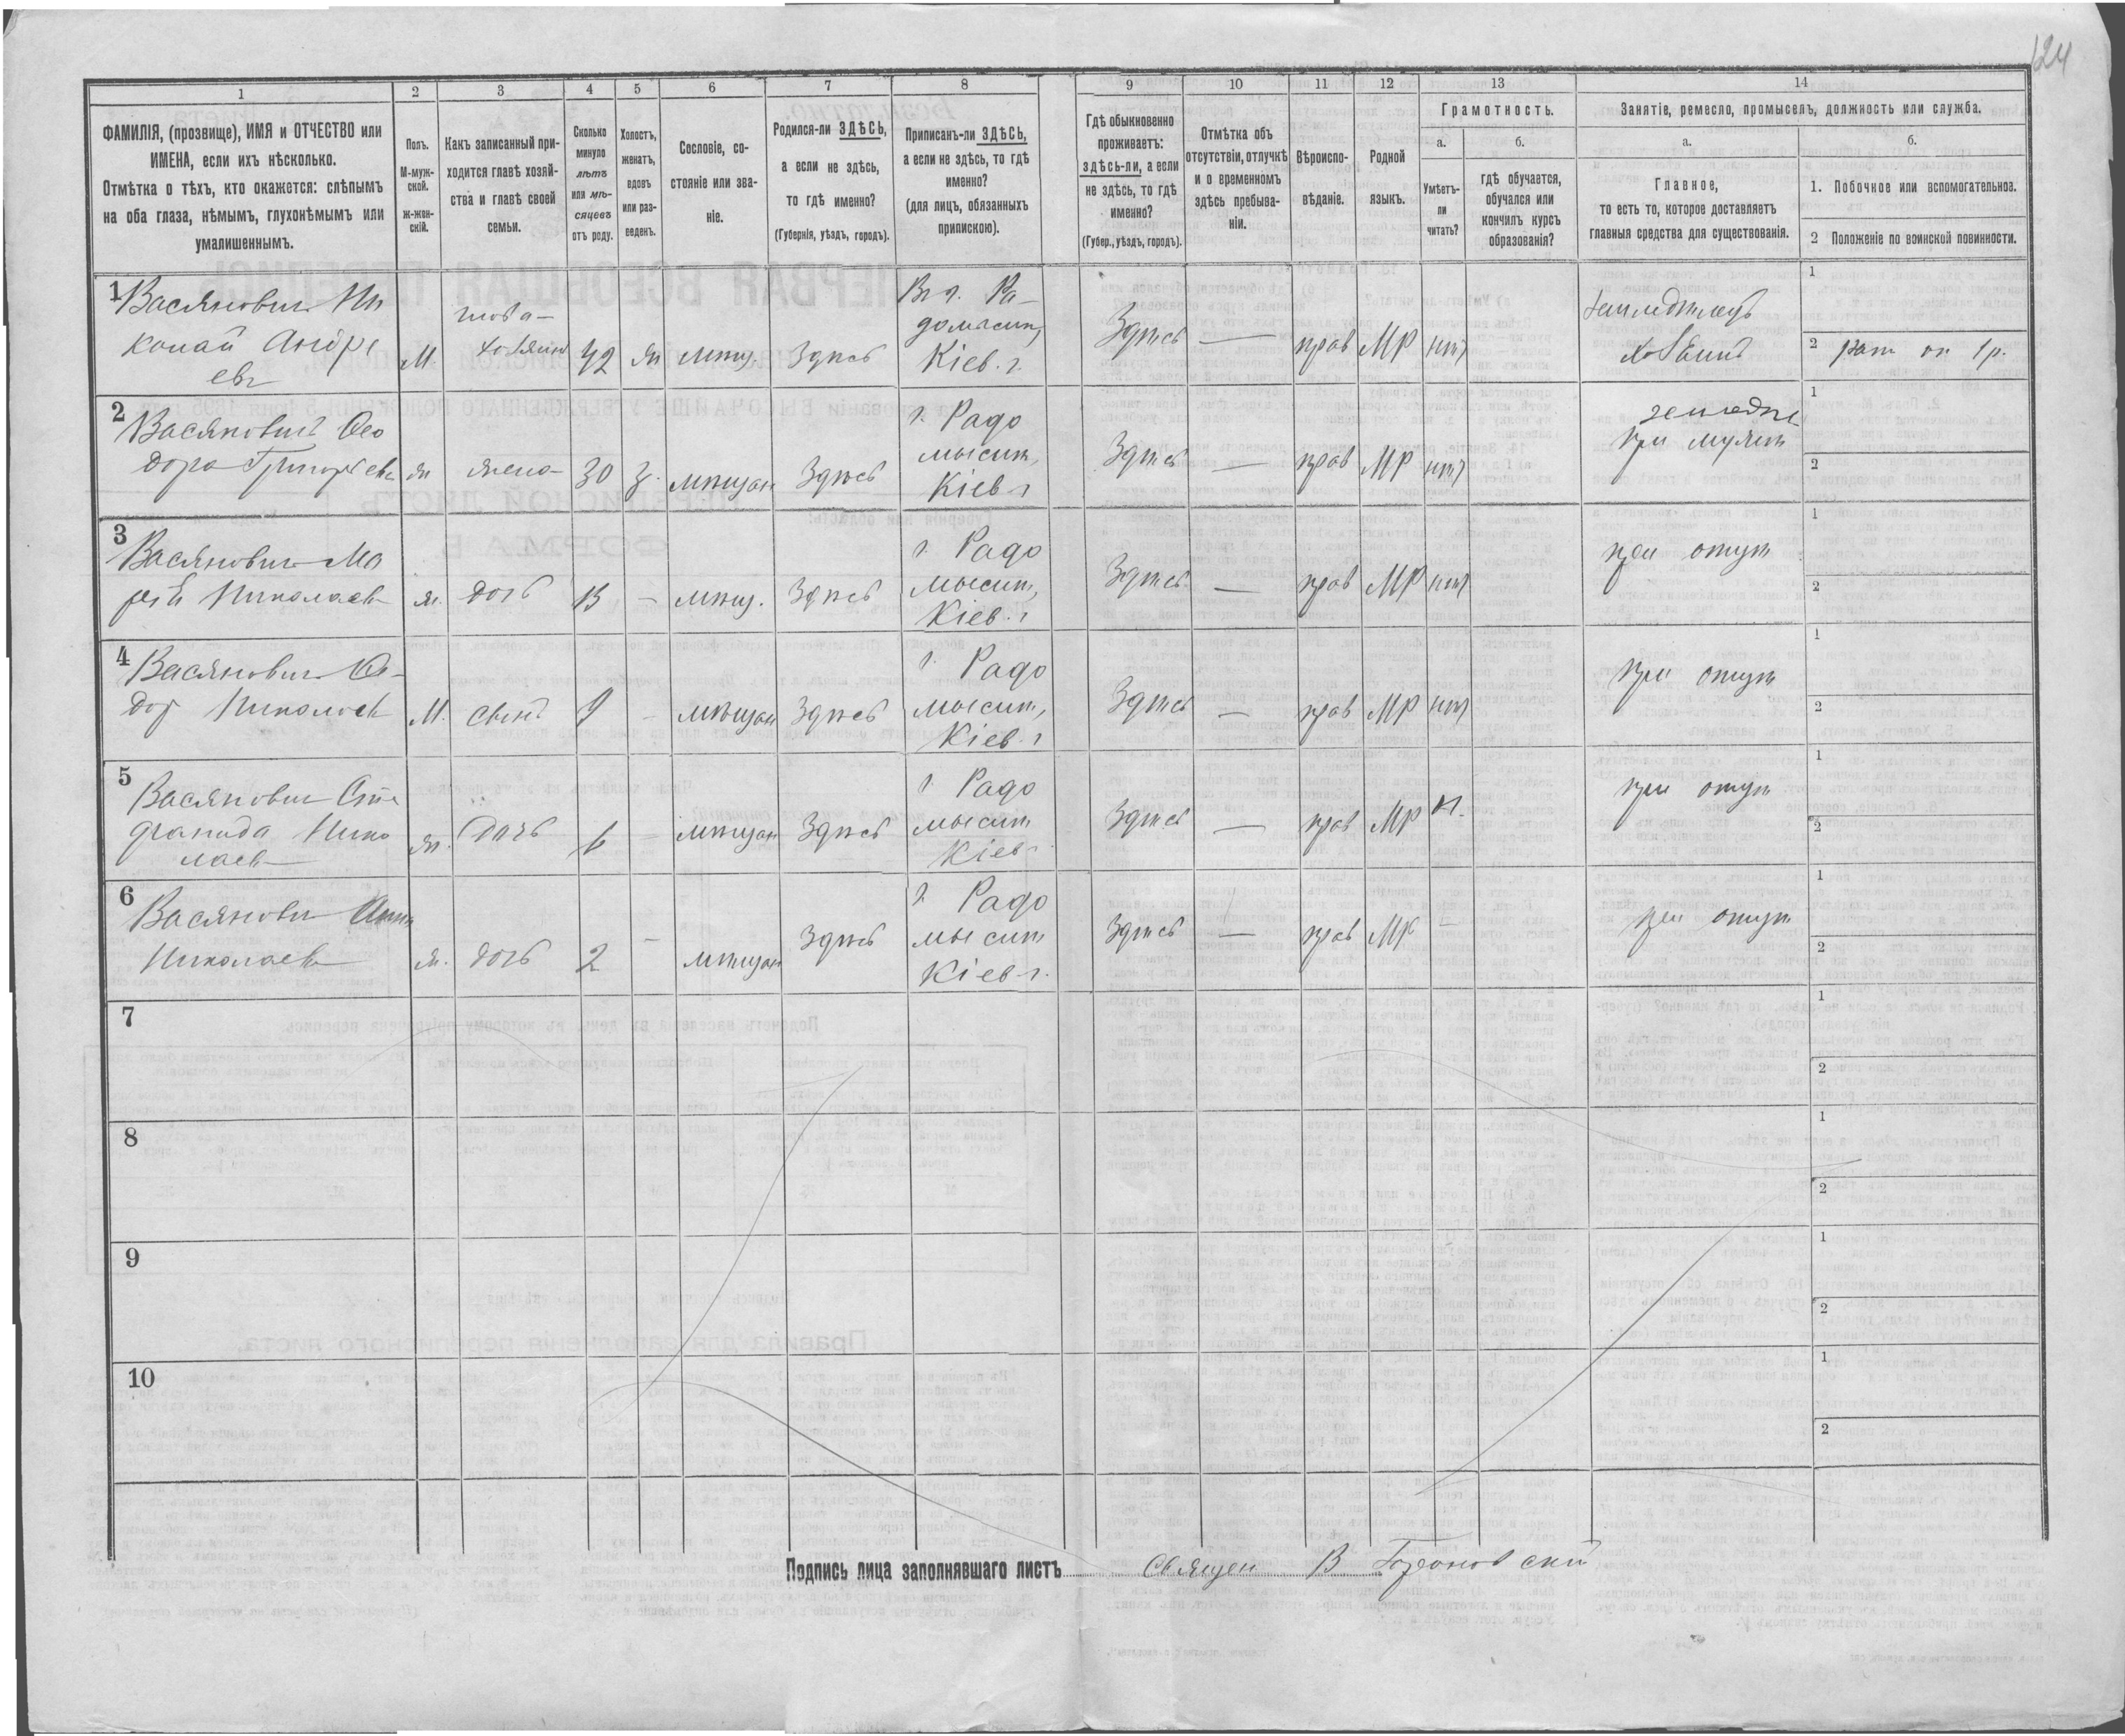 124
1 2 3 4 5 6 7 8 9 10 11 12 13 14
ФАМИЛІЯ, (прозвище), ИМЯ и ОТЧЕСТВО или
ИМЕНА, если ихъ нѣсколько.
Отмѣтка о тѣхъ, кто окажется: слѣпымъ
на оба глаза, нѣмымъ, глухонѣмымъ или
умалишеннымъ.
Полъ.
М-муж-
ской.
Ж-жен-
скій.
Какъ записанный при-
ходится главѣ хозяй-
ства и главѣ своей
семьи.
Сколько
минуло
лѣтъ
или мѣ-
сяцевъ
отъ роду.
Холостъ,
женатъ,
вдовъ
или раз-
веденъ.
Сословіе, со-
стояніе или зва-
ніе.
Родился-ли ЗДѢСЬ,
а если не здѣсь,
то гдѣ именно?
(Губернія, уѣздъ, городъ).
Приписанъ-ли ЗДѢСЬ,
а если не здѣсь, то гдѣ
именно?
(для лицъ, обязанныхъ
припискою).
Гдѣ обыкновенно
проживаетъ:
здѣсь-ли, а если
не здѣсь, то гдѣ
именно?
(Губер., уѣздъ, городъ).
Отмѣтка объ
отсутствіи, отлучкѣ
и о временномъ
здѣсь пребыва-
ніи.
Вѣроиспо-
вѣданіе.
Родной
языкъ.
Грамотность.
а.
Умѣетъ-
ли
читать?
б.
гдѣ обучается,
обучался или
кончилъ курсъ
образованія?
Занятіе, ремесло, промыселъ, должность или служба.
а.
Главное,
то есть то, которое доставляетъ
главныя средства для существованія.
б.
1. Побочное или вспомогательное.
2 Положеніе по воинской повинности.
1
Васяновичъ Ни
колай Андре
евъ
М.
глова-
хозяинъ
42
ж
мѣщ.
Здѣсь
Вг г. Ра-
домысли,
Кіев. г.
Здѣсь
—
прав
МР
нѣт
земледѣлецъ
хозяинъ
1
2
2
Васяновичъ Ѳео
дора Григорьевна
ж
жена
30
з.
мѣщан
Здѣсь
г. Радо
мысли,
Кіев г
Здѣсь
—
прав
МР
нѣт
земледѣл
при мужѣ
1
2
3
Васяновичъ Ма
рія Николаев
ж.
дочь
—
мѣщ.
Здѣсь
г. Радо
мысли,
Кіев. г
Здѣсь
—
прав
МР
нѣт
при отцѣ
1
2
4
Васяновичъ Ѳе-
дор Николаев
М.
сынъ
9
—
мѣщан
Здѣсь
г. Радо
мысли,
Кіев. г
Здѣсь
—
прав
МР
нѣт
при отцѣ
1
2
5
Васяновичъ Сте
фанида Нико
лаев
ж.
Дочь
6
—
мѣщан
Здѣсь
г. Радо
мысли
Кіев
Здѣсь
—
прав
МР
н.
при отцѣ
1
2
6
Васянович Анна
Николаев
ж.
дочь
2
—
мѣщан
Здѣсь
г. Радо
мысли
Кіев г.
Здѣсь
—
прав
МР
—
при отцѣ
1
2
7
1
2
8
1
2
9
1
2
10
1
2
Подпись лица заполнявшаго листъ Священ В.